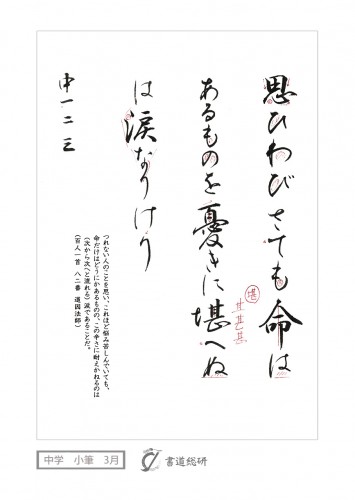 思ひわびさても命は
あるものを憂きに堪へぬ
は涙なりけり
中一二三
堪
甘其甚
つれない人のことを思い、これほど悩み苦しんでいても、
命だけはどうにかあるものの、この辛さに耐えかねるのは
(次から次へと流れる)涙であることだ。
(百人一首 八二番 道因法師)
中学 小筆 3月
書道総研